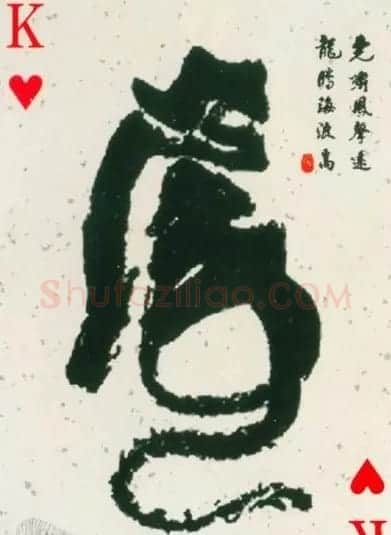 K
虎
虎嘯風聲遠
龍騰海波高
Shufaziliao.COM
K